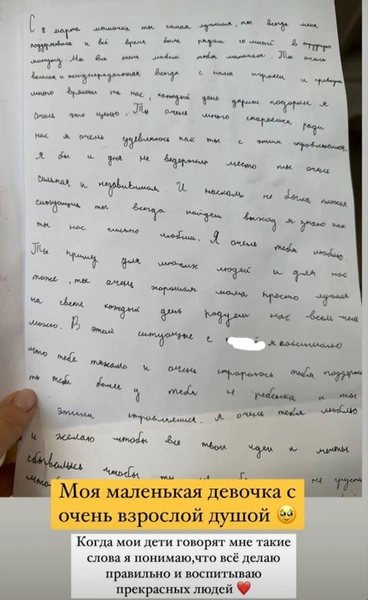 С 8 марта мамочка ты самая лучшая, ты всегда меня
поддерживала и всё время была рядом со мной в трудную
минуту. Мы все очень любим тебя мамочка. Ты очень
весёлая и жизнерадостная всегда с нами играешь и проводишь
много времени на нас, каждый день даришь подарки я
очень это ценю. Ты очень много стараешься ради
нас я очень удивляюсь как ты с этим справляешься.
Я бы и дня не выдержала место ты очень
сильная и независимая И насколь не была плохая
ситуация ты всегда найдёшь выход я знаю как
ты нас сильно любишь. Я очень тебя люблю
Ты пример для многих людей и для нас
тоже, ты очень хорошая мама просто лучшая
на свете каждый день радуешь нас всем чем
можно. В этой ситуации с я понимаю
что тебе тяжело и очень стараюсь тебя поддержать
то тебе более у тебя 4 ребёнка и ты
этим справляешься. Я очень тебя люблю
и желаю чтобы все твои идеи и мечты
сбывались чтобы ты не грусти
Моя маленькая девочка с
очень взрослой душой 🥹
Когда мои дети говорят мне такие
слова я понимаю,что всё делаю
правильно и воспитываю
прекрасных людей ❤️